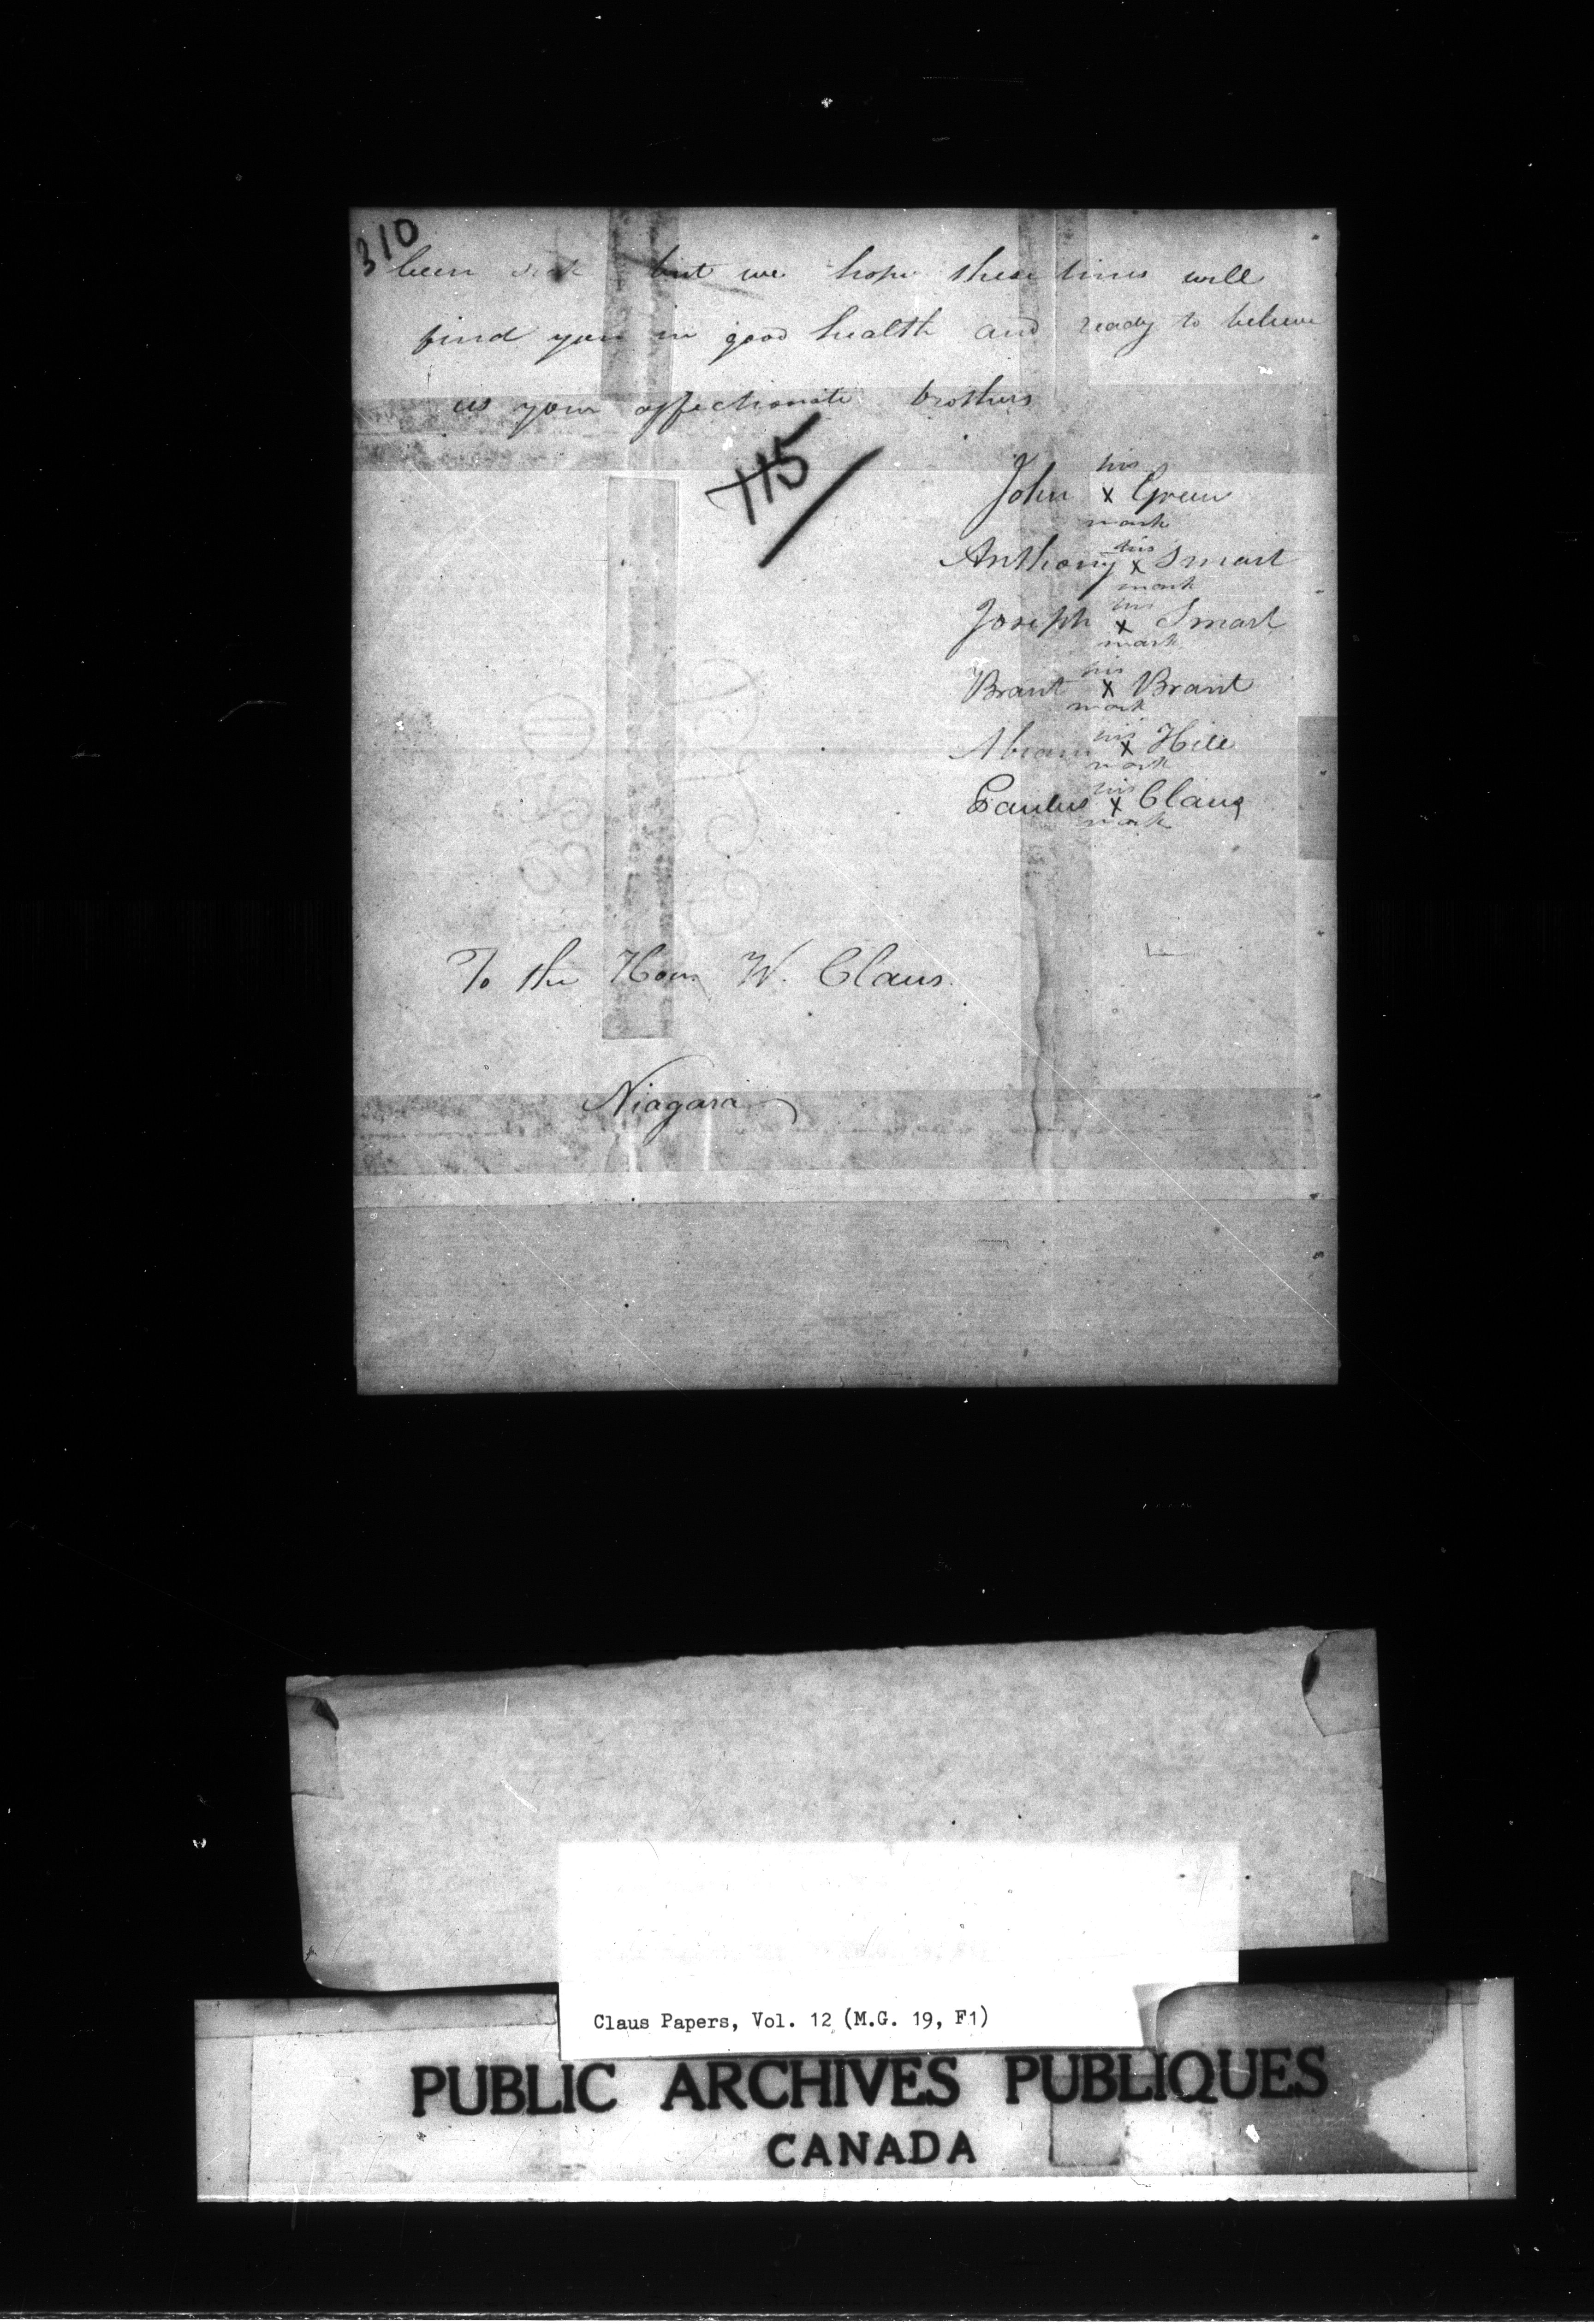 310
been sick but we hope these lines will
find you in good health and ready to believe
us your affectionate brothers
115
his
John x Green
mark
his
Anthony x Smart
mark
his
Joseph x Smart
mark
his
Brant x Brant
mark
his
Abram x Hill
mark
his
Paulus x Claus
mark
To the Hon. W. Claus.
Niagara
Claus Papers, Vol. 12 (M.G. 19, F1)
PUBLIC ARCHIVES PUBLIQUES
CANADA